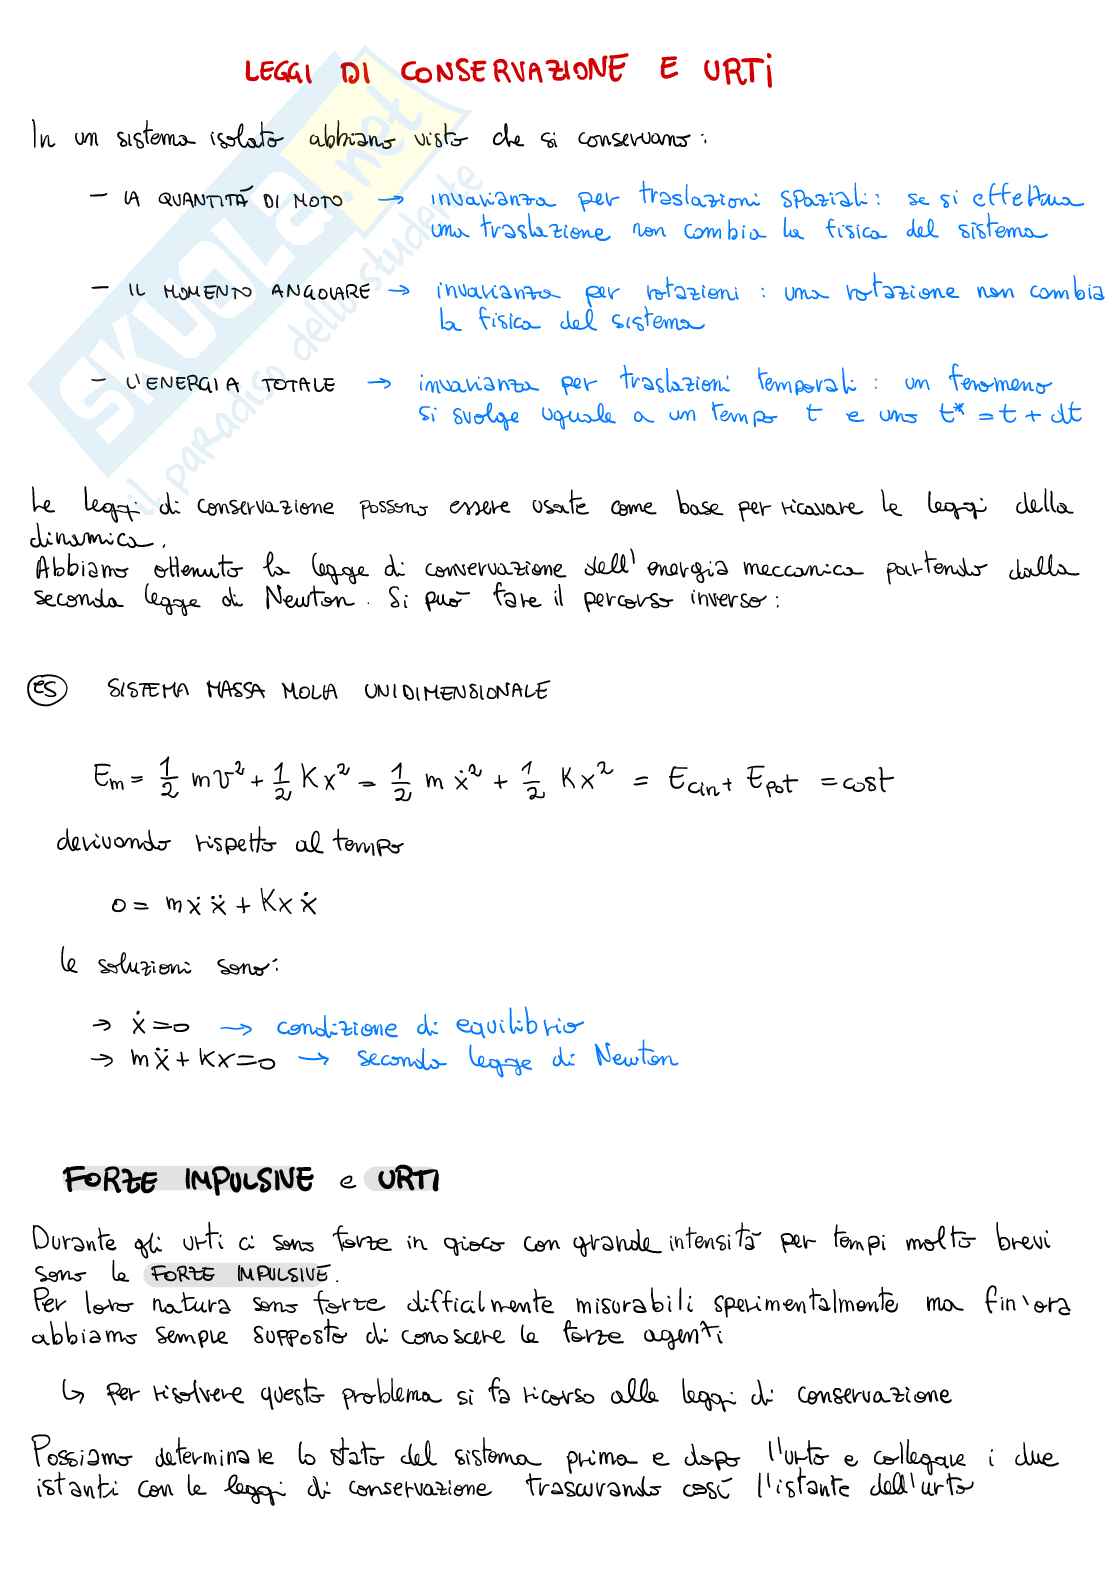 LEGGI DI CONSERVAZIONE E URTI
In un sistema isolato abbiamo visto che si conservano:
- LA QUANTITÀ DI MOTO → invarianza per traslazioni spaziali: se si effettua
una traslazione non cambia la fisica del sistema
- IL MOMENTO ANGOLARE → invarianza per rotazioni: una rotazione non cambia
la fisica del sistema
- L'ENERGIA TOTALE → invarianza per traslazioni temporali: un fenomeno
si svolge uguale a un tempo t e uno t* = t + dt
Le leggi di conservazione possono essere usate come base per ricavare le leggi della
dinamica.
Abbiamo ottenuto la legge di conservazione dell'energia meccanica partendo dalla
seconda legge di Newton. Si può fare il percorso inverso:
es SISTEMA MASSA MOLLA UNIDIMENSIONALE
Em = 1/2 mv² + 1/2 Kx² = 1/2 mẋ² + 1/2 Kx² = Ecin + Epot = cost
derivando rispetto al tempo
0 = mẋẍ + Kxẋ
le soluzioni sono:
→ ẋ=0 → condizione di equilibrio
→ mẍ + Kx=0 → seconda legge di Newton
FORZE IMPULSIVE e URTI
Durante gli urti ci sono forze in gioco con grande intensità per tempi molto brevi
sono le FORZE IMPULSIVE.
Per loro natura sono forze difficilmente misurabili sperimentalmente ma fin'ora
abbiamo sempre supposto di conoscere le forze agenti
↳ per risolvere questo problema si fa ricorso alle leggi di conservazione
Possiamo determinare lo stato del sistema prima e dopo l'urto e collegare i due
istanti con le leggi di conservazione trascurando così l'istante dell'urto
SKUOLA.net
il paradiso dello studente